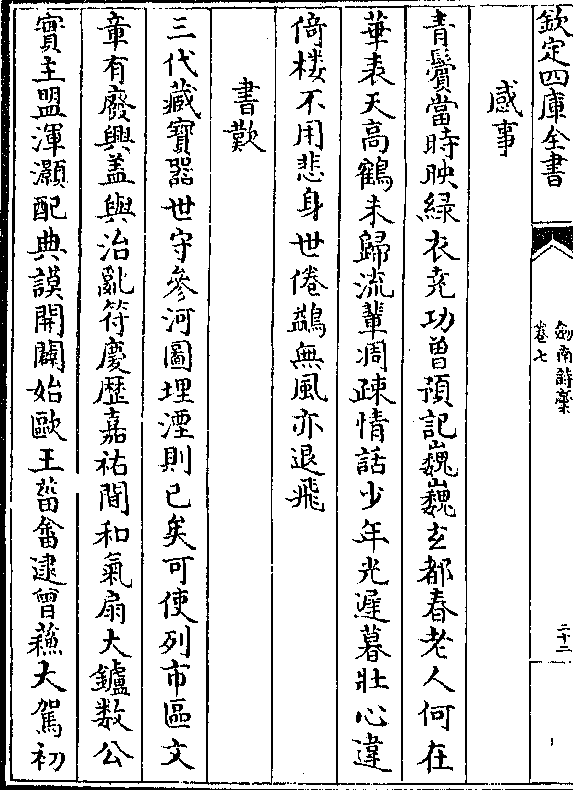 欽定四庫全書
劍南詩藁
卷七
二十二
感事
青鬢當時映緑衣堯功曽預記巍巍玄都春老人何在
華表天高鶴未歸流輩凋疎情話少年光遲暮壯心違
倚楼不用悲身世倦鷁無風亦退飛
書歎
三代藏寶器世守參河圖埋湮則已矣可使列市區文
章有廢興盖與治亂符慶歴嘉祐間和氣扇大鑪数公
實主盟渾灝配典謨開闢始歐王菑畬逮曾蘓大駕初